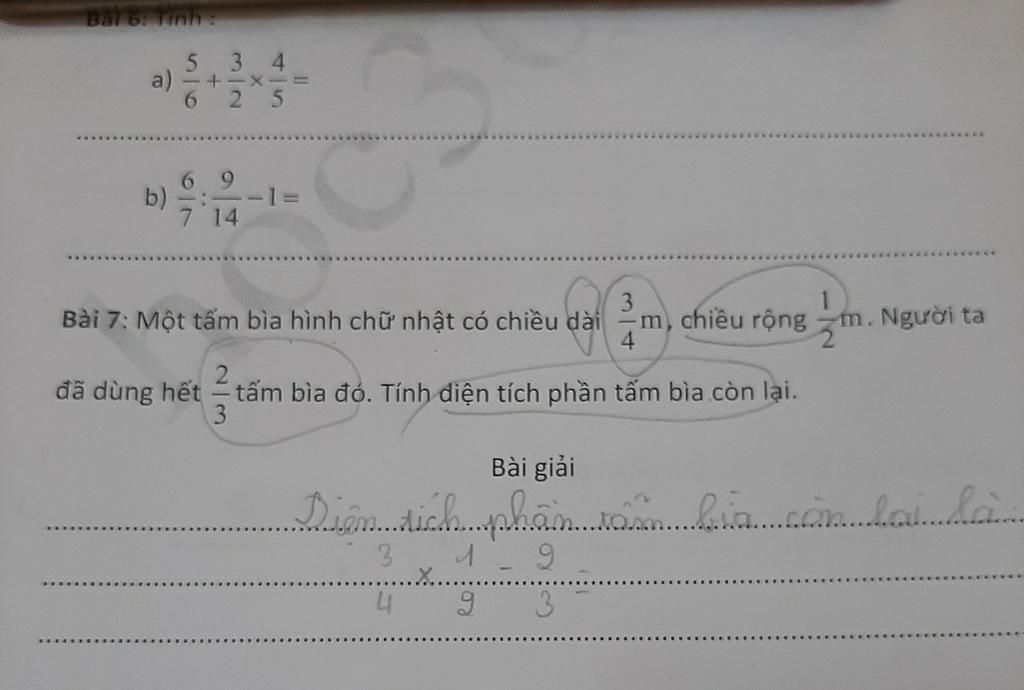 Bài 6: Tính :
a) 5/6 + 3/2 × 4/5 =
b) 6/7 : 9/14 − 1 =
Bài 7: Một tấm bìa hình chữ nhật có chiều dài 3/4 m, chiều rộng 1/2 m. Người ta
đã dùng hết 2/3 tấm bìa đó. Tính diện tích phần tấm bìa còn lại.
Bài giải
Diện tích phần tấm bìa còn lại là:
3/4 × 1/2 - 2/3 =